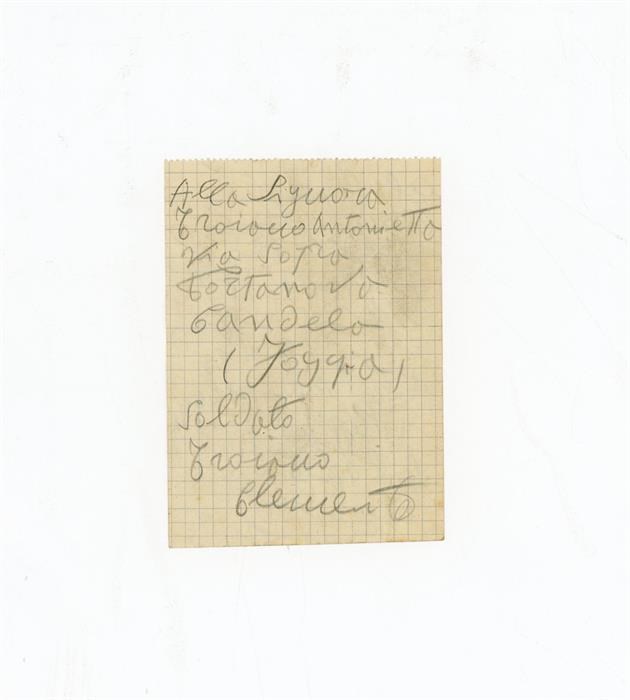 Alla Signora
Troiano Antonietta
Via Sopra
Portanova
Candela
(Foggia)
Soldato
Troiano
Clemente